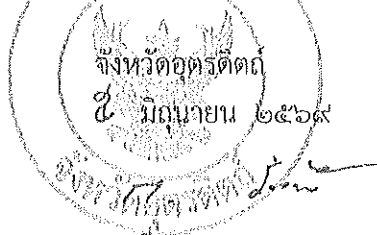 จังหวัดอุตรดิตถ์
มิถุนายน ๒๕๖๙
จังหวัดอุตรดิตถ์